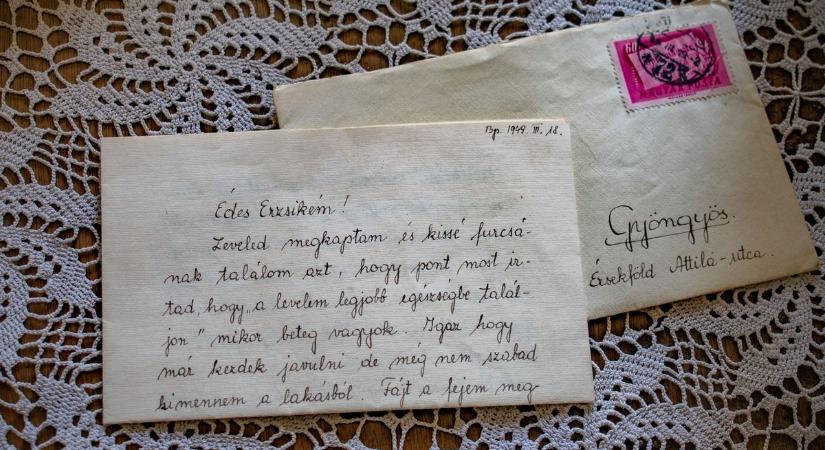 Bp. 1949. III. 18.
Édes Erzsikém!
Leveled megkaptam és kissé furcsá-
nak találom azt, hogy pont most ír-
tad, hogy „a levelem legjobb egészségbe talál-
jon" mikor beteg vagyok. Igaz hogy
már kezdek javulni de még nem szabad
kimennem a lakásból. Fájt a fejem meg
60
MAGYAR POSTA
Gyöngyös.
Érsekföld Attila-utca.